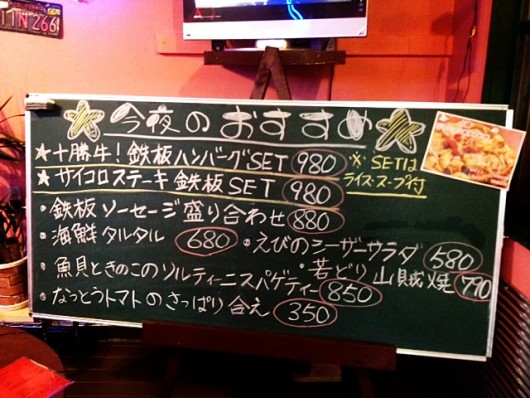 TIN 266
☆今夜のおすすめ☆
★十勝牛!鉄板ハンバーグSET 980
★サイコロステーキ鉄板SET 980
※SETは
ライス・スープ付
・鉄板ソーセージ盛り合わせ 880
・海鮮タルタル 680
・えびのシーザーサラダ 580
・魚貝ときのこのソルティーニスパゲティー 850
・若どり山賊焼 790
・なっとうトマトのさっぱり合え 350